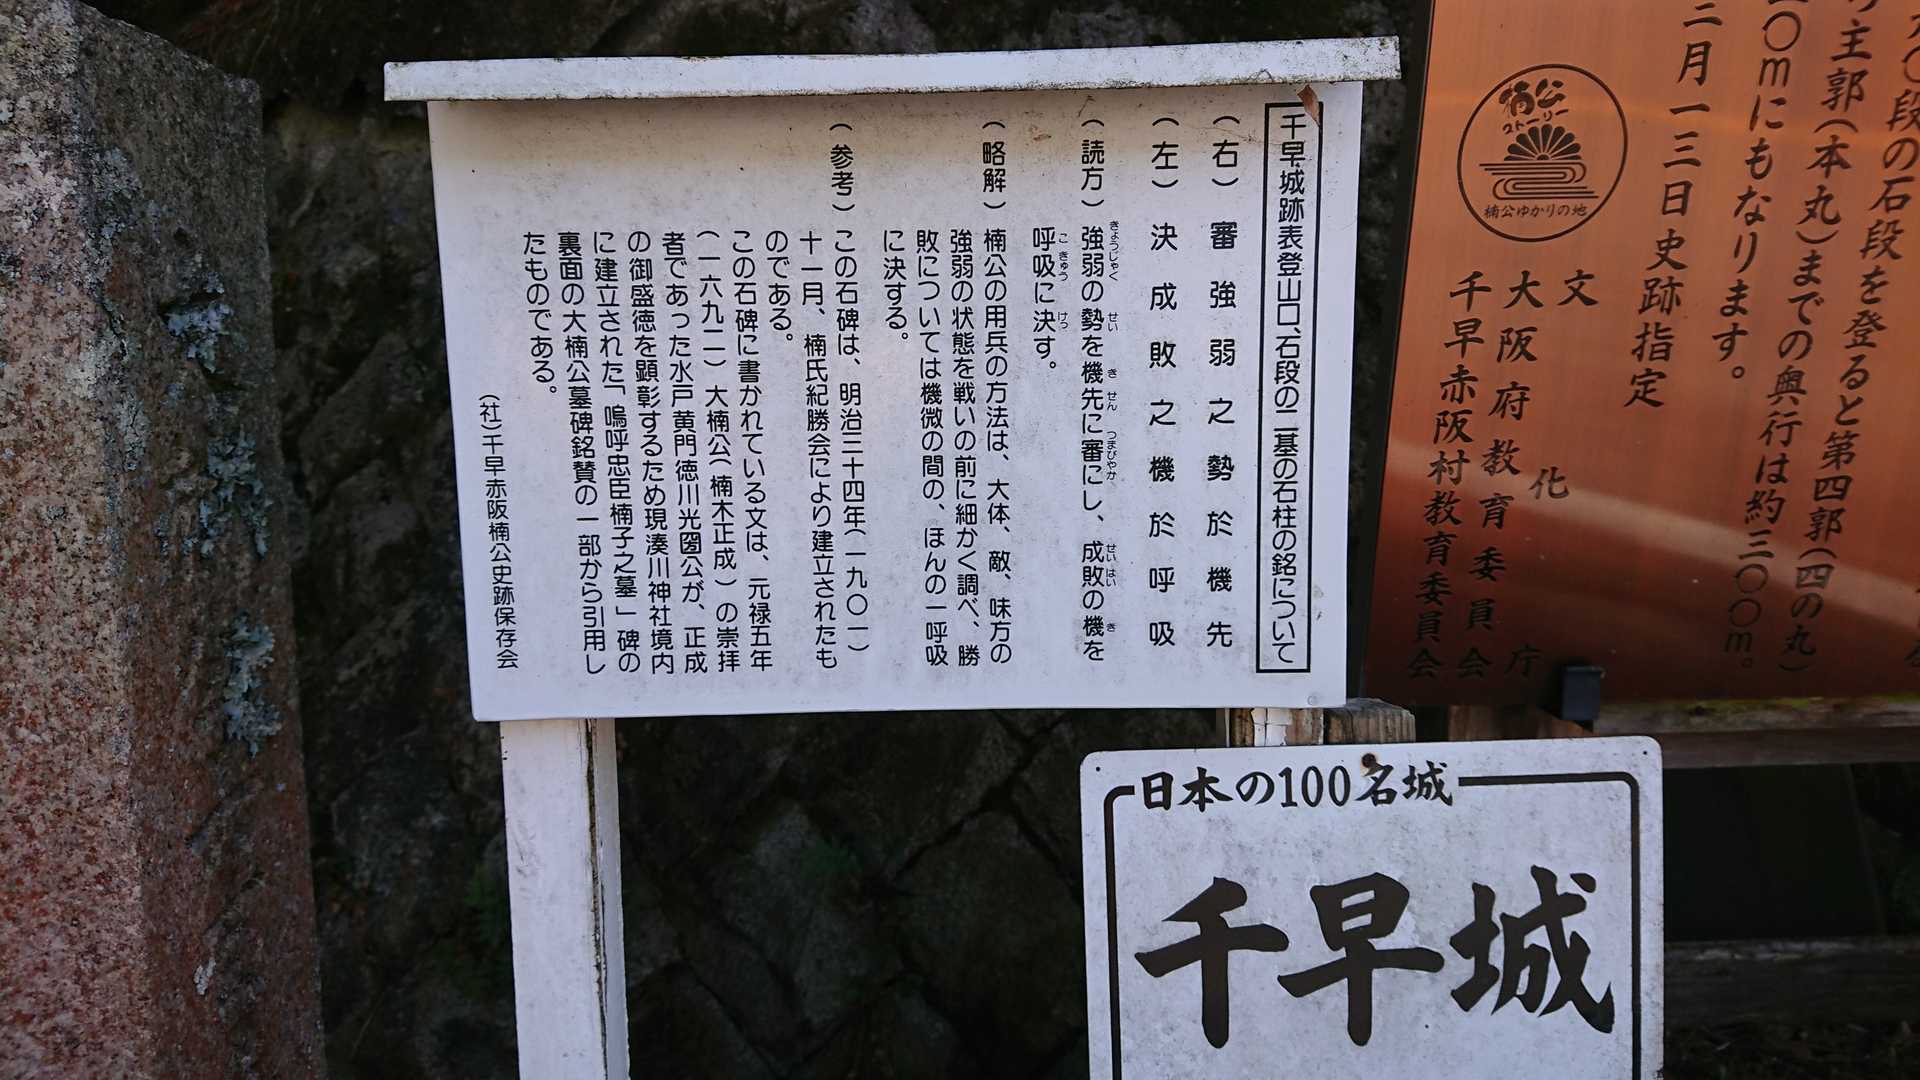 千早城跡表登山口、石段の二基の石柱の銘について
（右）審強弱之勢於機先
（左）決成敗之機於呼吸
（読方）強弱の勢を機先に審にし、成敗の機を
きょうじゃく せい き せん つまびやか せいはい き
呼吸に決す。
こ きゅう けっ
（略解）楠公の用兵の方法は、大体、敵、味方の
強弱の状態を戦いの前に細かく調べ、勝
敗については機微の間の、ほんの一呼吸
に決する。
（参考）この石碑は、明治三十四年（一九〇一）
十一月、楠氏紀勝会により建立されたも
のである。
この石碑に書かれている文は、元禄五年
（一六九二）大楠公（楠木正成）の崇拝
者であった水戸黄門徳川光圀公が、正成
の御盛徳を顕彰するため現湊川神社境内
に建立された「嗚呼忠臣楠子之墓」碑の
裏面の大楠公墓碑銘賛の一部から引用し
たものである。
（社）千早赤阪楠公史跡保存会
段の石段を登ると第四郭（四の丸）
主郭（本丸）までの奥行は約三〇〇m。
〇mにもなります。
二月一三日史跡指定
文化庁
大阪府教育委員会
千早赤阪村教育委員会
楠公
ストーリー
楠公ゆかりの地
日本の100名城
千早城